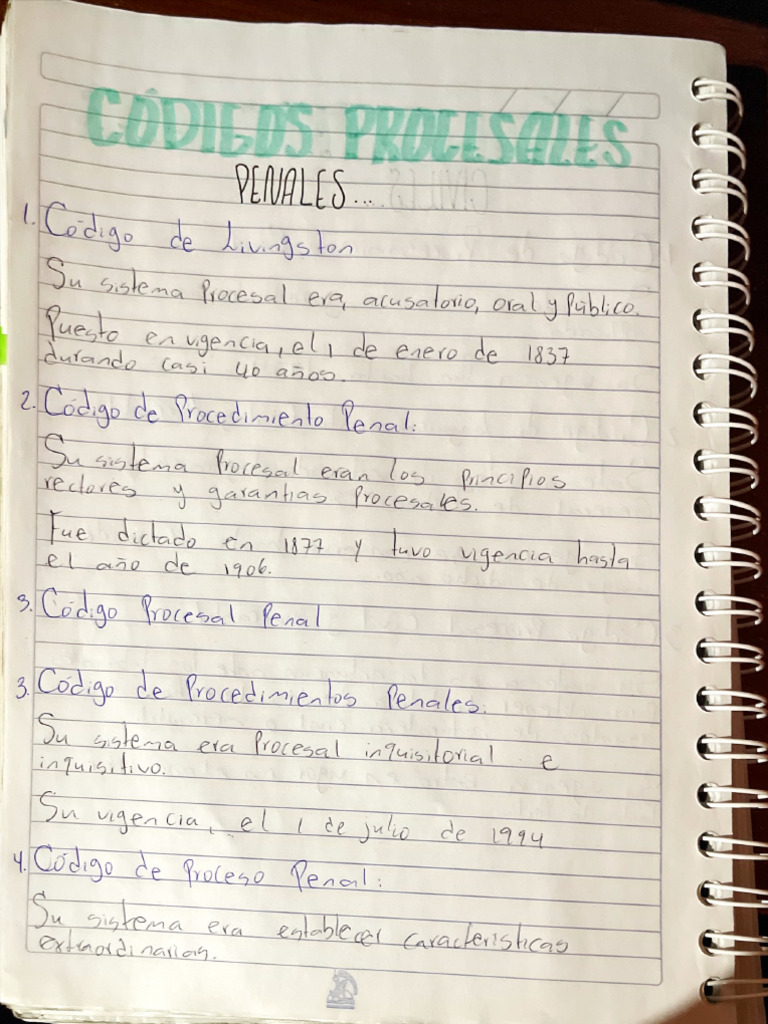 CÓDIGOS PROCESALES
PENALES...
1. Código de Livingston
Su sistema Procesal era, acusatorio, oral y Público.
Puesto en vigencia, el 1 de enero de 1837
durando casi 40 años.
2. Código de Procedimiento Penal:
Su sistema Procesal eran los principios
rectores y garantías Procesales.
Fue dictado en 1877 y tuvo vigencia hasta
el año de 1906.
3. Código Procesal Penal
3. Código de Procedimientos Penales.
Su sistema era Procesal inquisitorial e
inquisitivo.
Su vigencia, el 1 de julio de 1994
4. Código de Proceso Penal:
Su sistema era establecer características
extraordinarias.